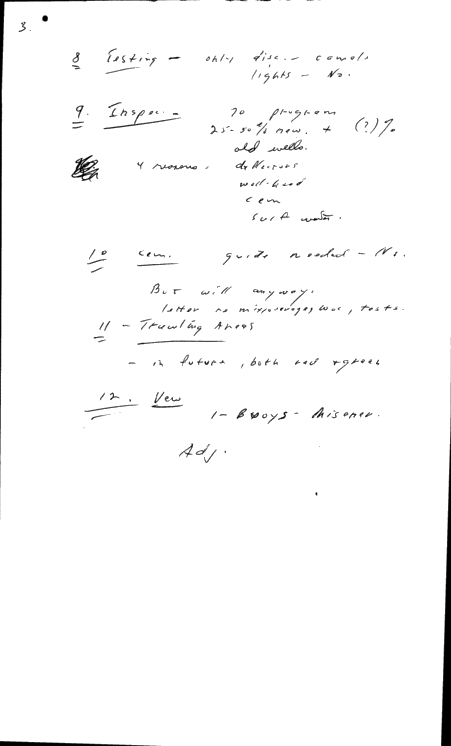 3.
8 Testing - only disc. - canals
lights - No.
9. Inspec. - 70 program
25-50% new. + (?)%
old wells.
4 reasons.
well-head
cem
surf water.
10 cem. guide needed - No.
But will anyway.
letter re , tests.
11 - Trawling Areas
- in future, both red + green
12. New
1 - Buoys - Misener.
Adj.